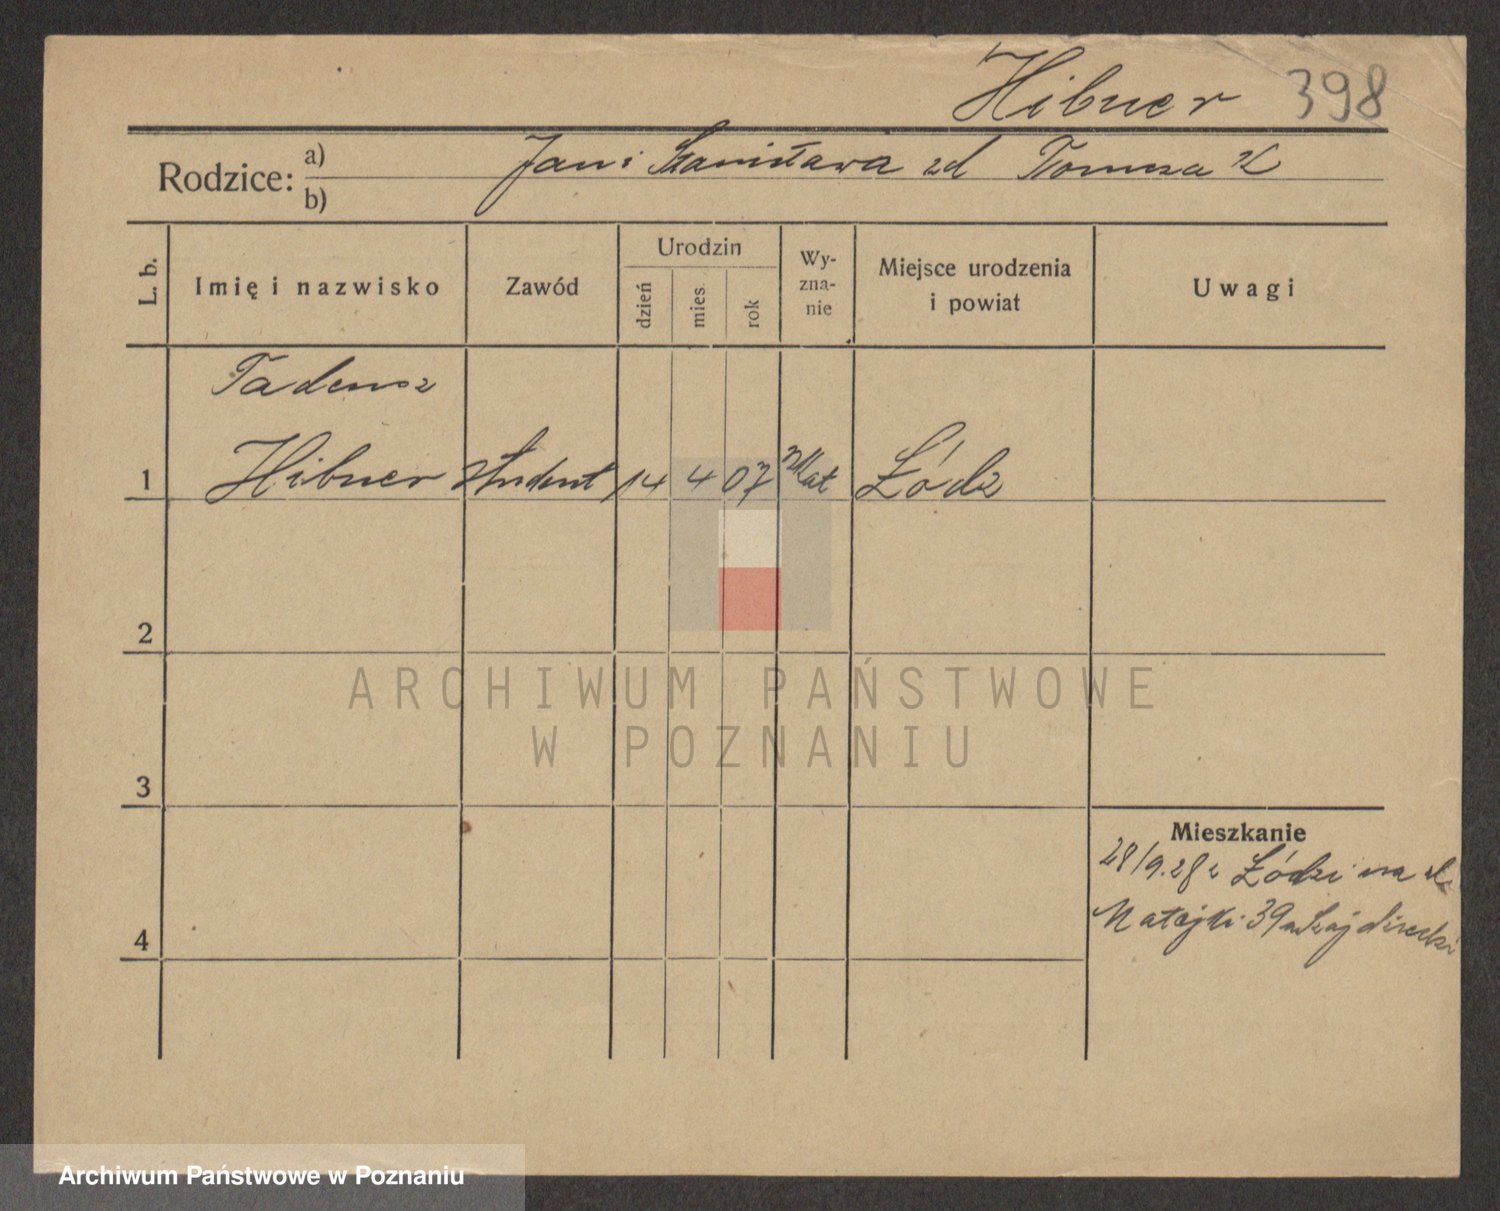 Hibner 398
Rodzice: a) b) Jan i Stanisława zd
L. b.
Imię i nazwisko
Zawód
Urodzin
dzień
mies
rok
Wy-
zna-
nie
Miejsce urodzenia
i powiat
Uwagi
Tadeusz
1 Hibner student 14 4 07 rzkat Łódz
2
3
4
Mieszkanie
28/9.28 z Łódzi na ul
Matejki 39
ARCHIWUM PAŃSTWOWE
W POZNANIU
Archiwum Państwowe w Poznaniu